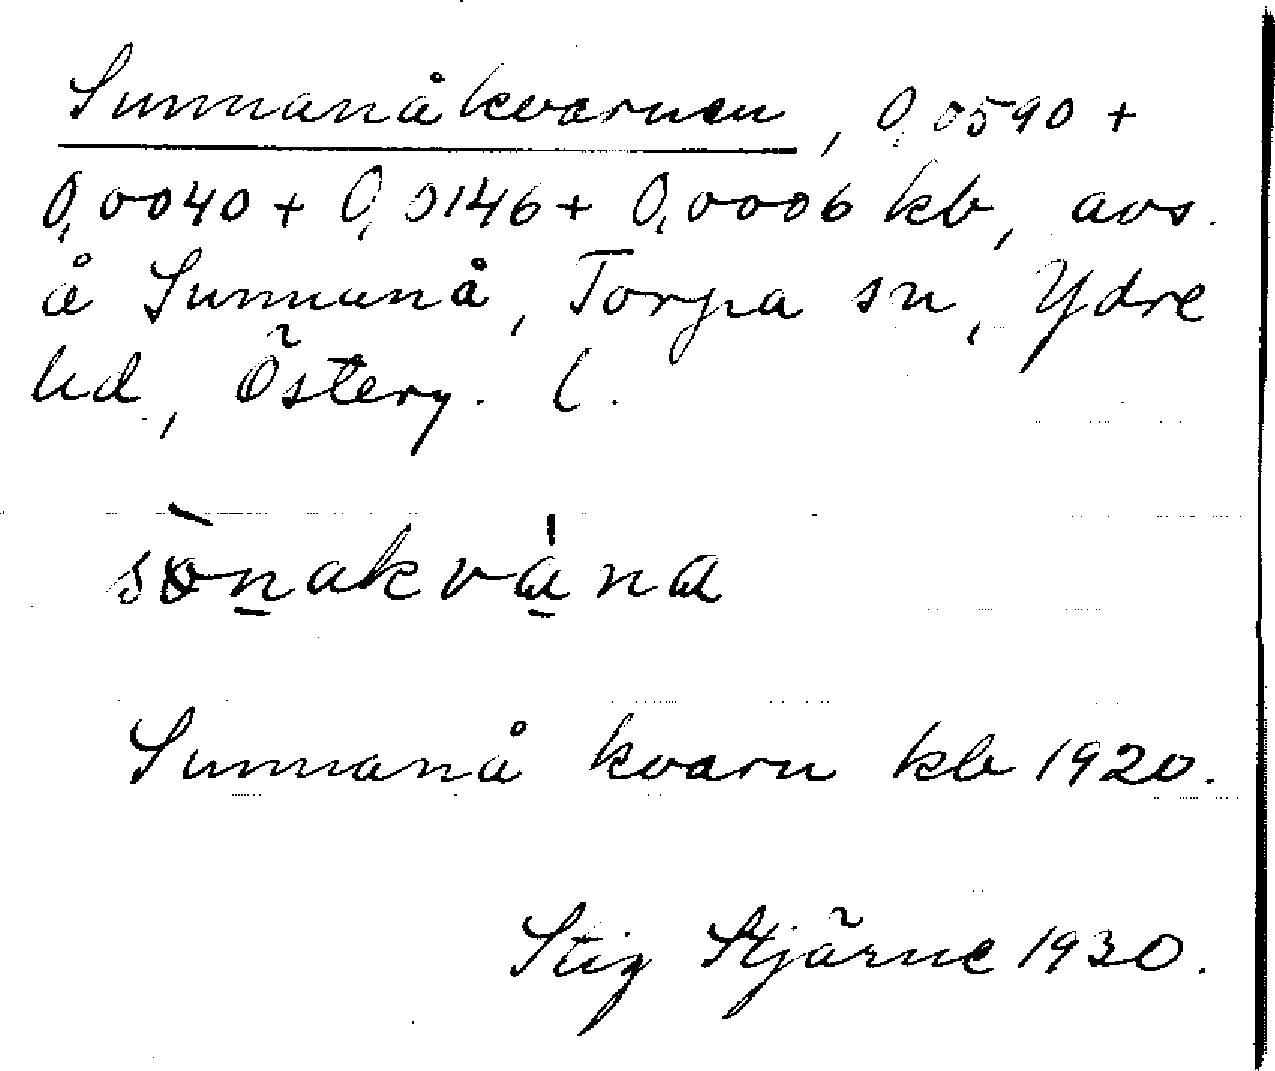 Sunnanåkvarnen, 0,0590 +
0,0040 + 0,0146 + 0,0006 kb, avs.
å Sunnanå, Torpa sn, Ydre
hd, Österg. l.
sònakvána
Sunnanå kvarn kb 1920.
Stig Stjärne 1930.